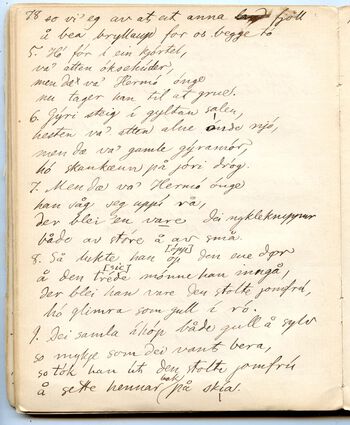 78 so vi' eg av at eit anna land fjöll
å bea' bryllaup for os begge tó
5. Hó fór i ein kjortel,
va' åtten óksehúder,
men de' va' Hermó ónge
nu tager han til at grue.
6. Gýri steig i gyltan salen,
hesten va' åtten alne ónde njó,
men dæ va' gamle gýramór,
hó skankenn på jóri dróg.
7. Men dæ va' Hermó ónge
han såg seg uppi rå,
der blei 'en vare dei nykleknippur
både av stóre å av små.
8. Så lukte han [opp] den eine dør
å den trede [sic] mónne han inngå,
der blei han vare den stolte jomfrú,
hó glimra som gull i ró.
9. Dei samla ihóp både gull å sylv
so mykje som dei vant bera,
so tók han út den stolte jomfrú
å sette hennar bak på skía.